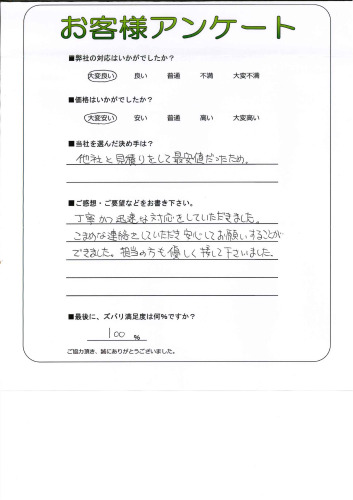 お客様アンケート
■弊社の対応はいかがでしたか？
大変良い 良い 普通 不満 大変不満
■価格はいかがでしたか？
大変安い 安い 普通 高い 大変高い
■当社を選んだ決め手は？
他社と見積りをして最安値だったため。
■ご感想・ご要望などをお書き下さい。
丁寧かつ迅速な対応をしていただきました。
こまめな連絡をしていただき安心してお願いすることが
できました。担当の方も優しく接して下さいました。
■最後に、ズバリ満足度は何%ですか？
100 %
ご協力頂き、誠にありがとうございました。